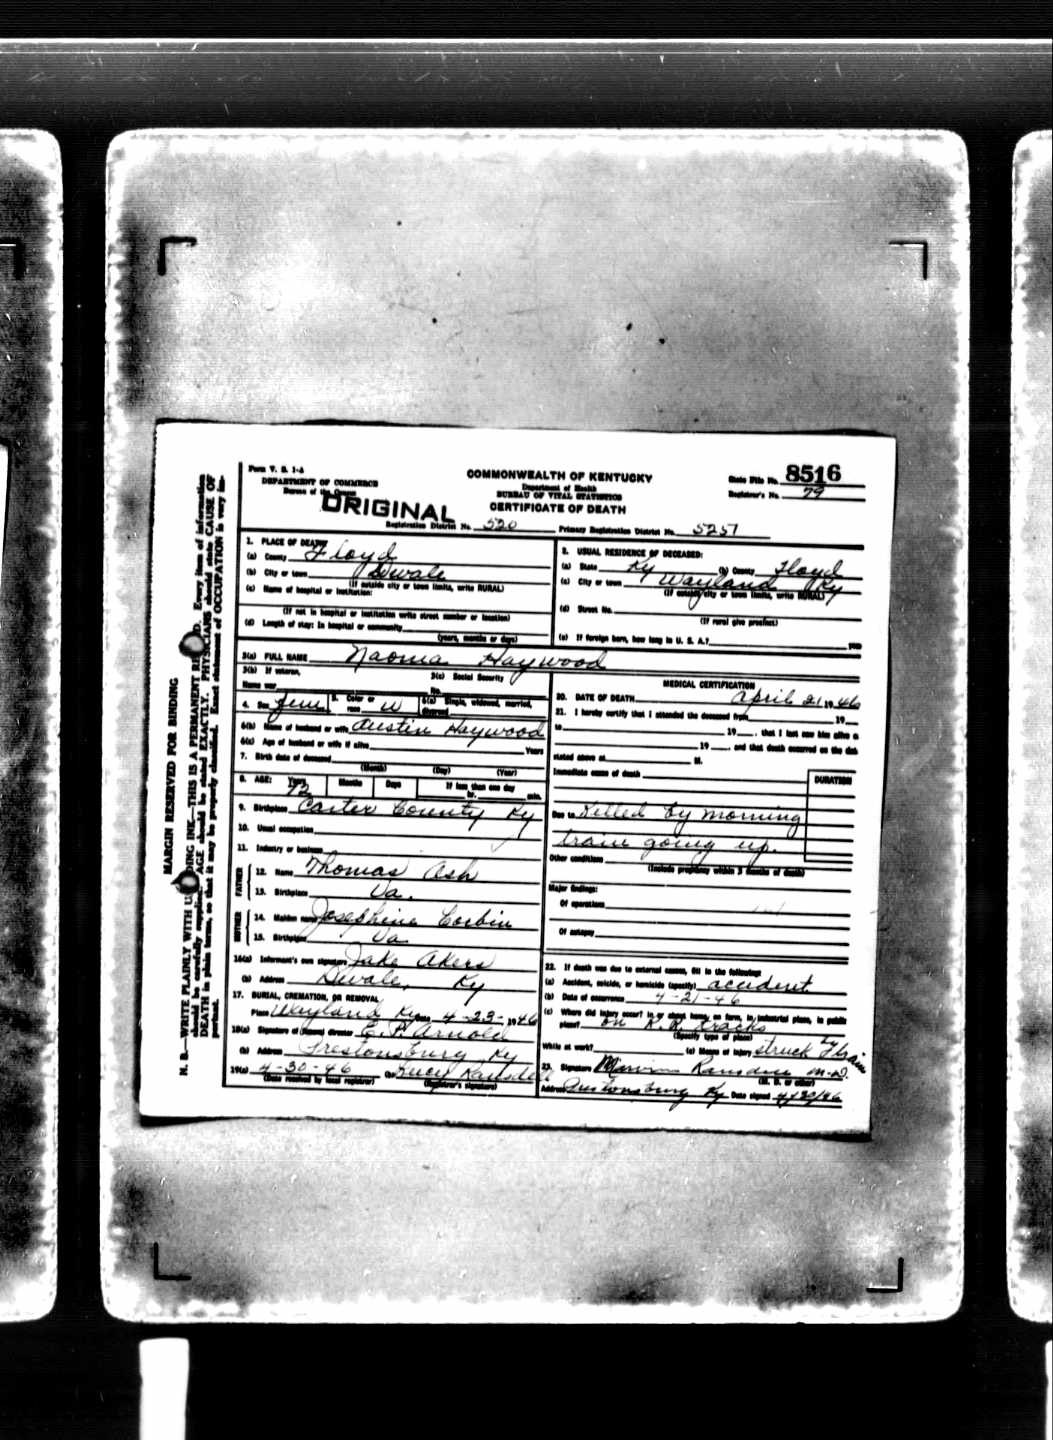 Form V. S. 1-A
DEPARTMENT OF COMMERCE
Bureau of the Census
ORIGINAL
COMMONWEALTH OF KENTUCKY
Department of Health
BUREAU OF VITAL STATISTICS
CERTIFICATE OF DEATH
State File No. 8516
Registrar's No. 79
Registration District No. 520
Primary Registration District No. 5251
1. PLACE OF DEATH
(a) County Floyd
(b) City or town Dwale
(If outside city or town limits, write RURAL)
(c) Name of hospital or institution:
(If not in hospital or institution write street number or location)
(d) Length of stay: In hospital or community
(years, months or days)
2. USUAL RESIDENCE OF DECEASED:
(a) State Ky (b) County Floyd
(c) City or town Wayland Ky
(If outside city or town limits, write RURAL)
(d) Street No.
(If rural give precinct)
(e) If foreign born, how long in U. S. A.? years
3(a) FULL NAME Naoma Haywood
3(b) If veteran,
Name war
3(c) Social Security
No.
4. Sex Fem 5. Color or race W 6(a) Single, widowed, married, divorced
6(b) Name of husband or wife Austin Haywood
6(c) Age of husband or wife if alive Years
7. Birth date of deceased
(Month) (Day) (Year)
8. AGE: Years 72 Months Days If less than one day hr. min.
9. Birthplace Carter County Ky
10. Usual occupation
11. Industry or business
FATHER
12. Name Thomas Ash
13. Birthplace Va.
MOTHER
14. Maiden name Josephine Corbin
15. Birthplace Va
16(a) Informant's own signature Jake Akers
(b) Address Dwale, Ky
17. BURIAL, CREMATION, OR REMOVAL
Place Wayland Ky Date 4-23- 1946
18(a) Signature of funeral director E. P. Arnold
(b) Address Prestonsburg Ky
19(a) 4-30-46 (b)
(Date received by local registrar) (Registrar's signature)
MEDICAL CERTIFICATION
20. DATE OF DEATH April 21 1946
21. I hereby certify that I attended the deceased from 19
to 19 that I last saw him alive o
19 and that death occurred on the dat
stated above at M.
Immediate cause of death
DURATION
Due to Killed by morning
train going up.
Other conditions
(Include pregnancy within 3 months of death)
Major findings:
Of operations
Of autopsy
22. If death was due to external causes, fill in the following:
(a) Accident, suicide, or homicide (specify) accident
(b) Date of occurrence 4-21-46
(c) Where did injury occur? In or about home, on farm, in industrial place, in public
place? on R. R tracks
(Specify type of place)
While at work? (e) Means of injury struck by train
23. Signature M.D.
(M. D. or other)
Address Prestonsburg Ky Date signed 4/30/46
MARGIN RESERVED FOR BINDING